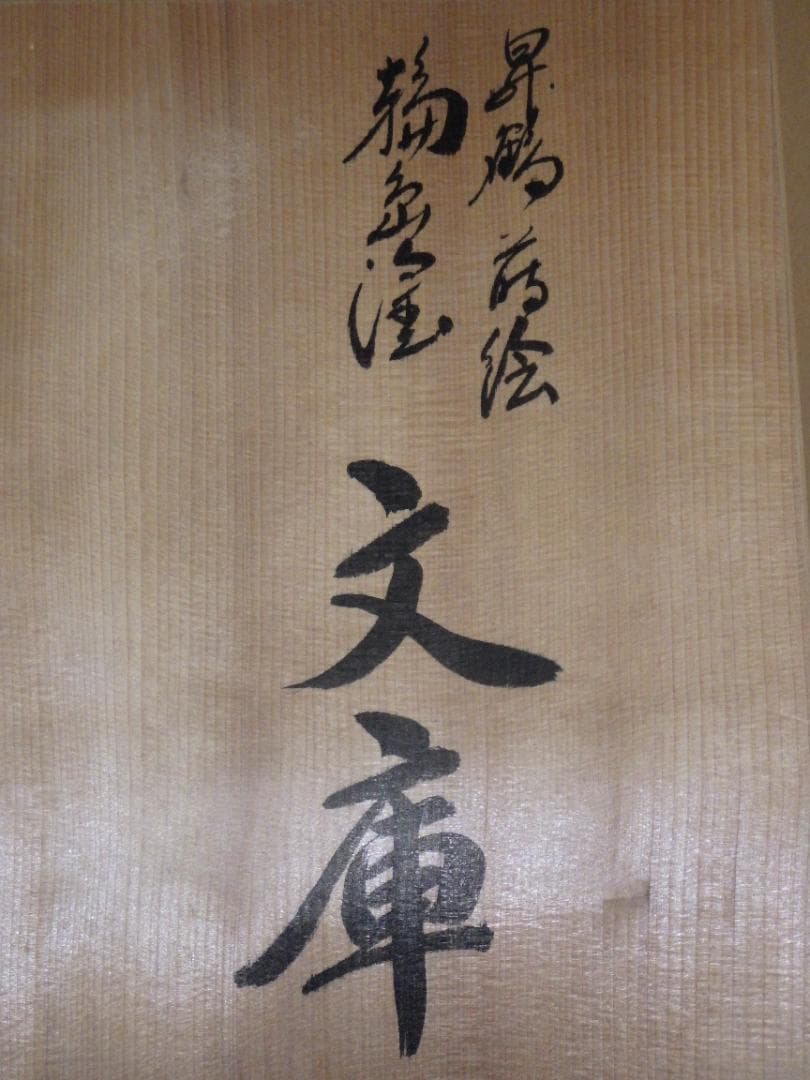 昇鶴蒔絵
輪島塗
文庫